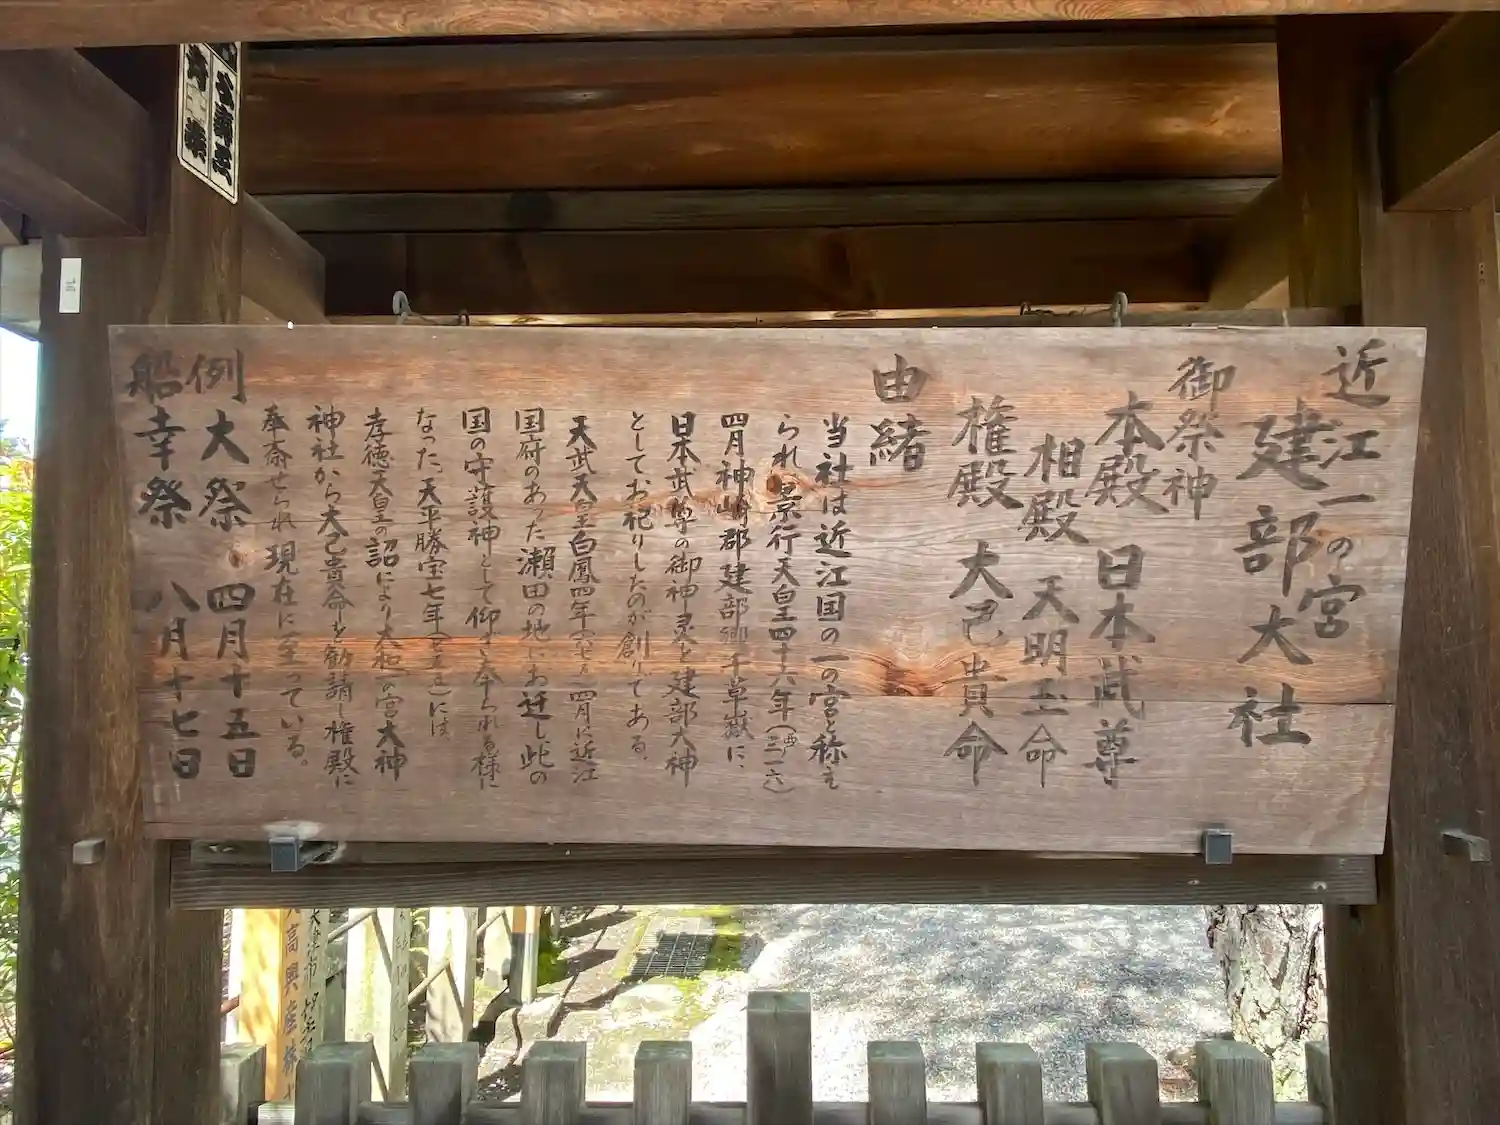 近江一の宮
建部大社
御祭神
本殿 日本武尊
相殿 天明玉命
権殿 大己貴命
由緒
当社は近江国の一の宮と称え
られ景行天皇四十六年(西三一六)
四月神崎郡建部郷千草嶽に、
日本武尊の御神霊を建部大神
としてお祀りしたのが創りである。
天武天皇白鳳四年(六七五)四月に近江
国府のあった瀬田の地にお迁し此の
国の守護神として仰ぎ奉られる様に
なった。天平勝宝七年(七五五)には、
孝徳天皇の詔により大和一の宮大神
神社から大己貴命を勧請し権殿に
奉斎せられ現在に至っている。
例大祭 四月十五日
船幸祭 八月十七日
高興産株
大津市